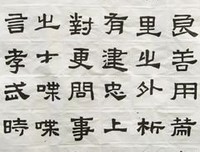 良善用
里之外析
有建忠上
對更問事
之才喋喋
言孝武時